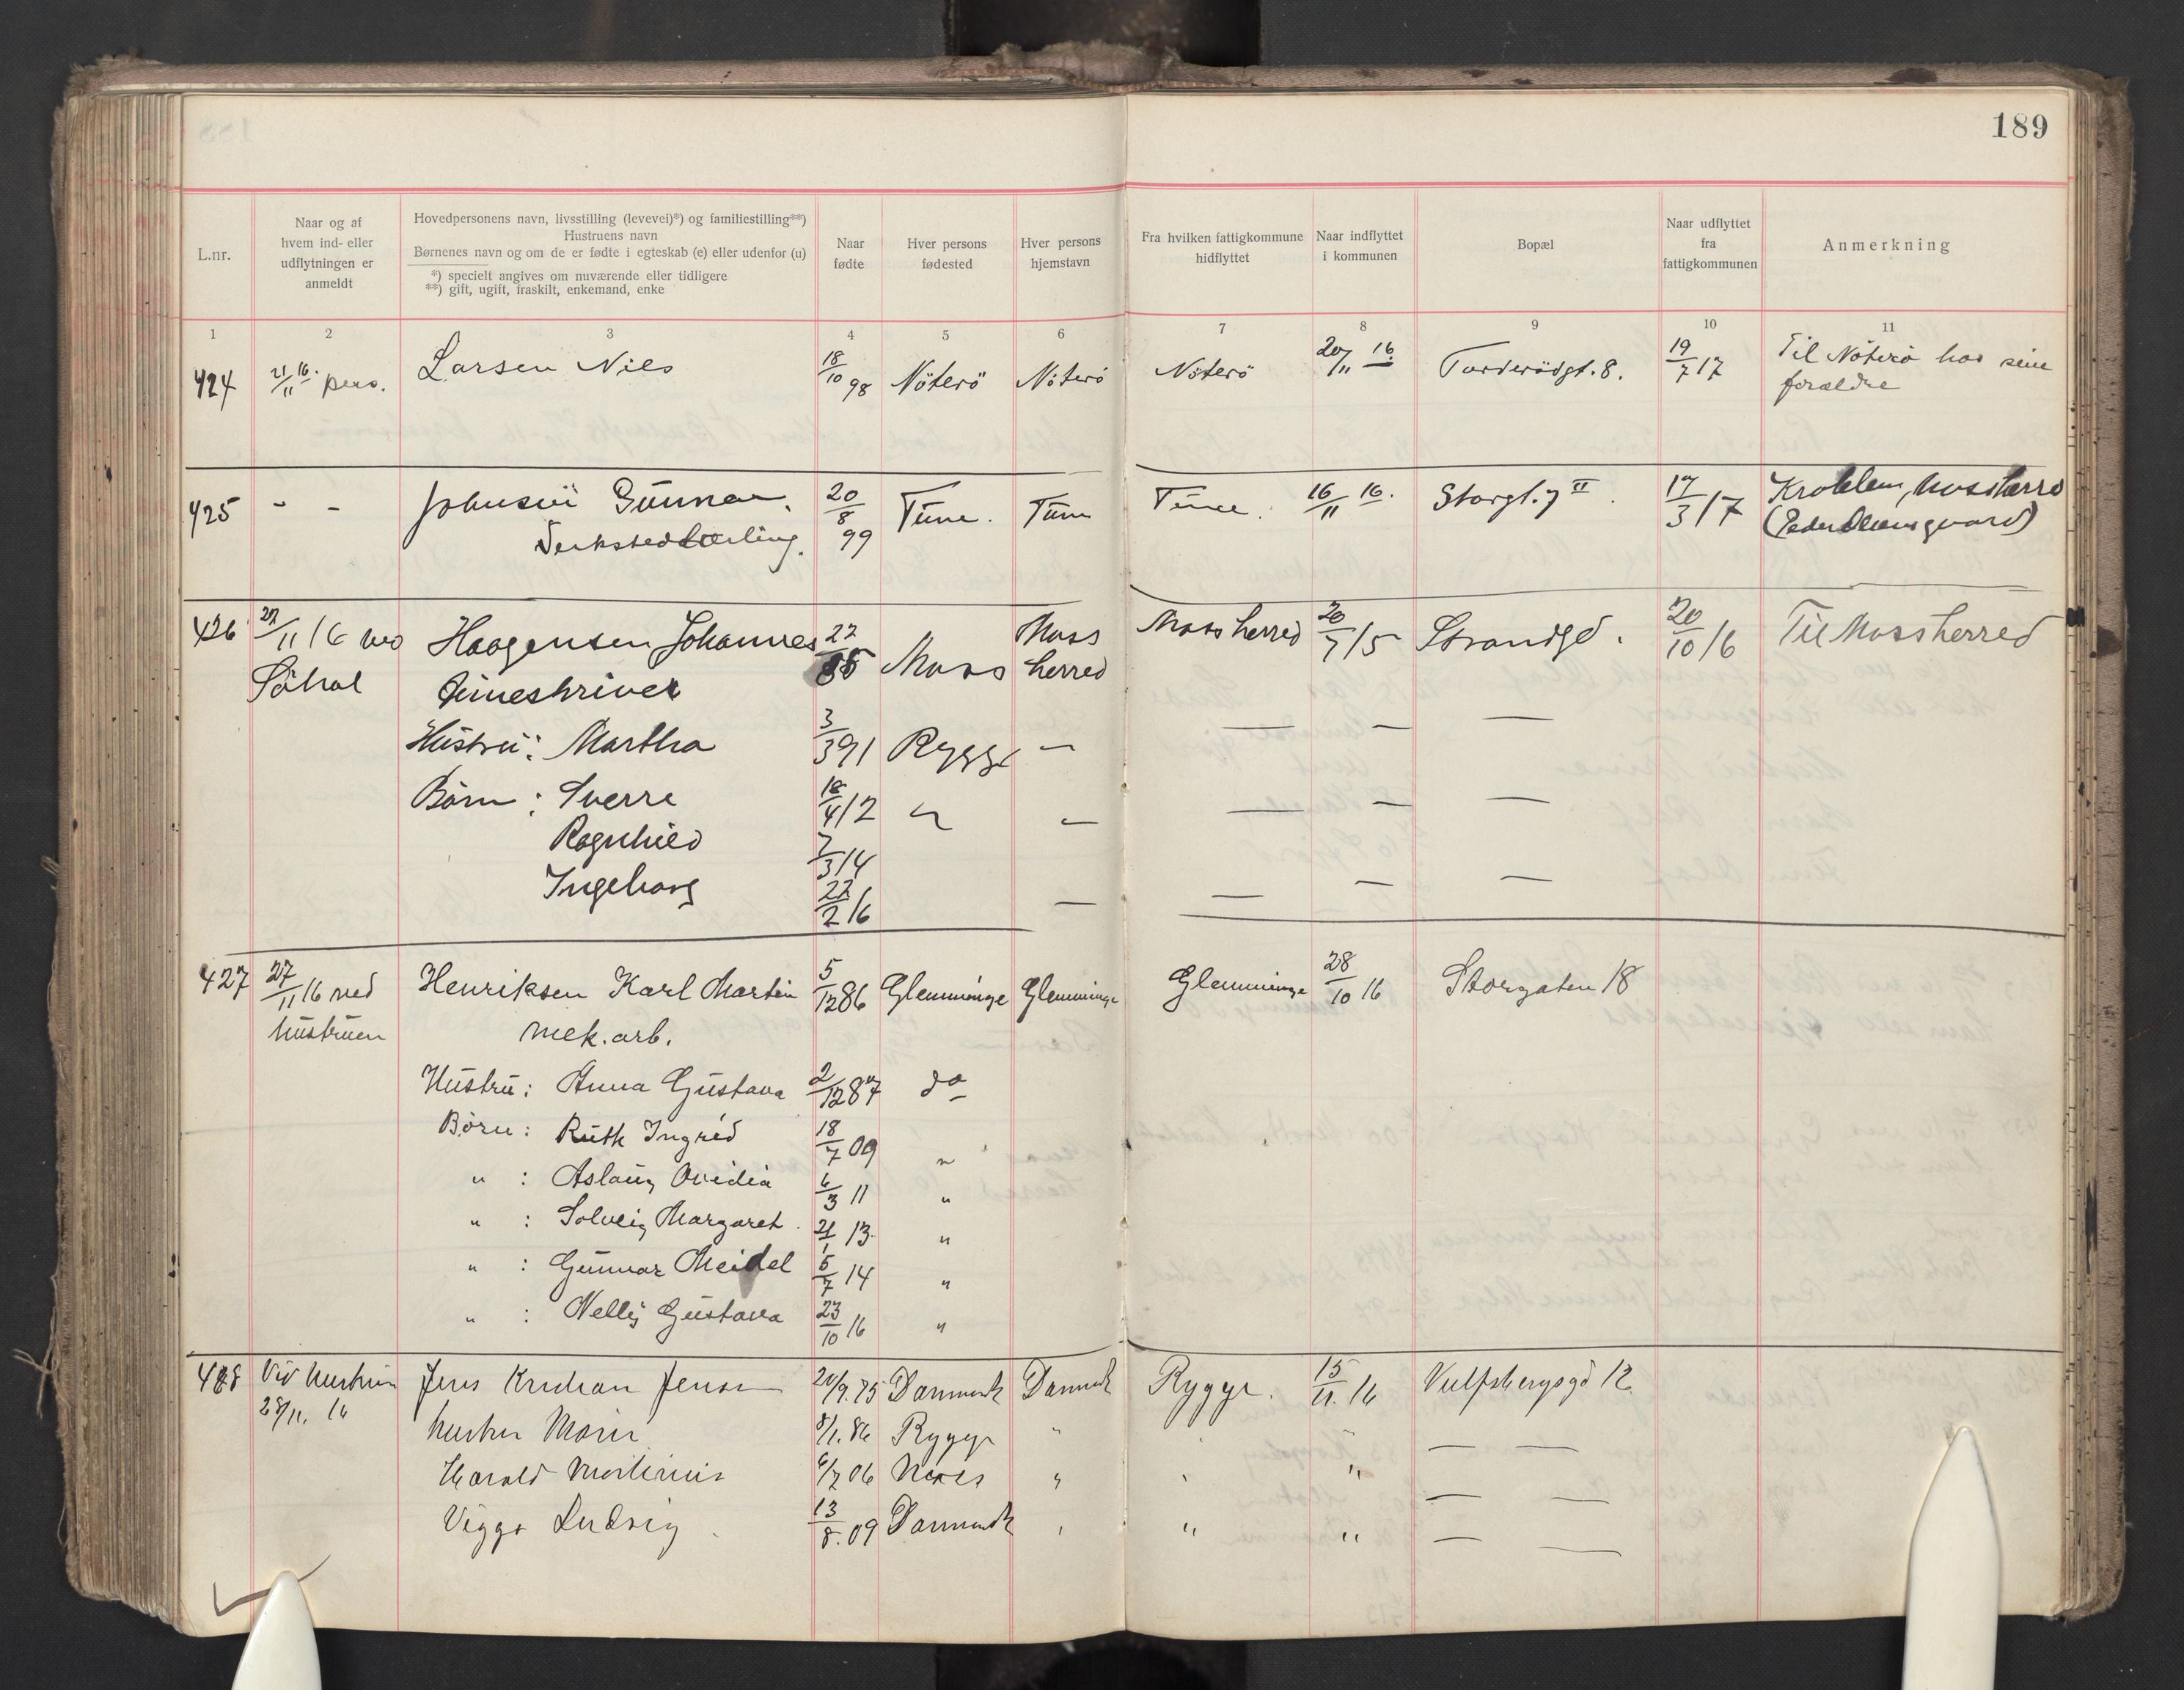 189
L.nr.
Naar og af
hvem ind- eller
udflytningen er
anmeldt
Hovedpersonens navn, livsstilling (levevei)*) og familiestilling**)
Hustruens navn
Børnenes navn og om de er fødte i egteskab (e) eller udenfor (u)
*) specielt angives om nuværende eller tidligere
**) gift, ugift, fraskilt, enkemand, enke
Naar
fødte
Hver persons
fødested
Hver persons
hjemstavn
Fra hvilken fattigkommune
hidflyttet
Naar indflyttet
i kommunen
Bopæl
Naar udflyttet
fra
fattigkommunen
Anmerkning
1 2 3 4 5 6 7 8 9 10 11
424 21/11 16. pers. Larsen Nils 18/10 98 Nöterö Nöterö Nöterö 20/11 16 8. 19/7 17 Til Nöterö hos sine
forældre
425 - - Johnsen Gunnar. 20/8 99 Tune. Tune Tune. 16/11 16. Storgt. 7 II. 17/3 17 Mossherred
Verkstedlærling.
426 /11 16 ved Haagensen Johannes 22/ 85 Moss Moss herred Mossherred 20/7 15 Strandgd. 20/10 16 Til Mossherred
Hustru: Martha 3/3 91 Rygge — — — —
Børn: Sverre 18/4 12 " — — — —
Ragnhild 7/3 14
Ingeborg 22/2 16 — — — —
427 27/11 16 ved Henriksen Karl Martin 5/12 86 Glemminge Glemminge Glemminge 28/10 16 Storgaten 18
hustruen mek. arb.
Hustru: Anna Gustava 2/12 87 do
Børn: Ruth Ingrid 18/7 09 "
" : Aslaug Ovidia 6/3 11 "
" : Solveig Margaret. 21/1 13. "
" : Gunnar Meidel 5/7 14 "
" : Nelly Gustava 23/10 16 "
428 Ved hustru Jens Kristian Jensen 20/9. 75 Danmark Danmark Rygge. 15/11. 16 Vulfsbergsgd 12
28/11. 16 hustru 8/1. 86 Rygge " " " — —
Harald 6/7 06 Moss " " " — —
Viggo Ludvig. 13/8. 09 Danmark " " " — —